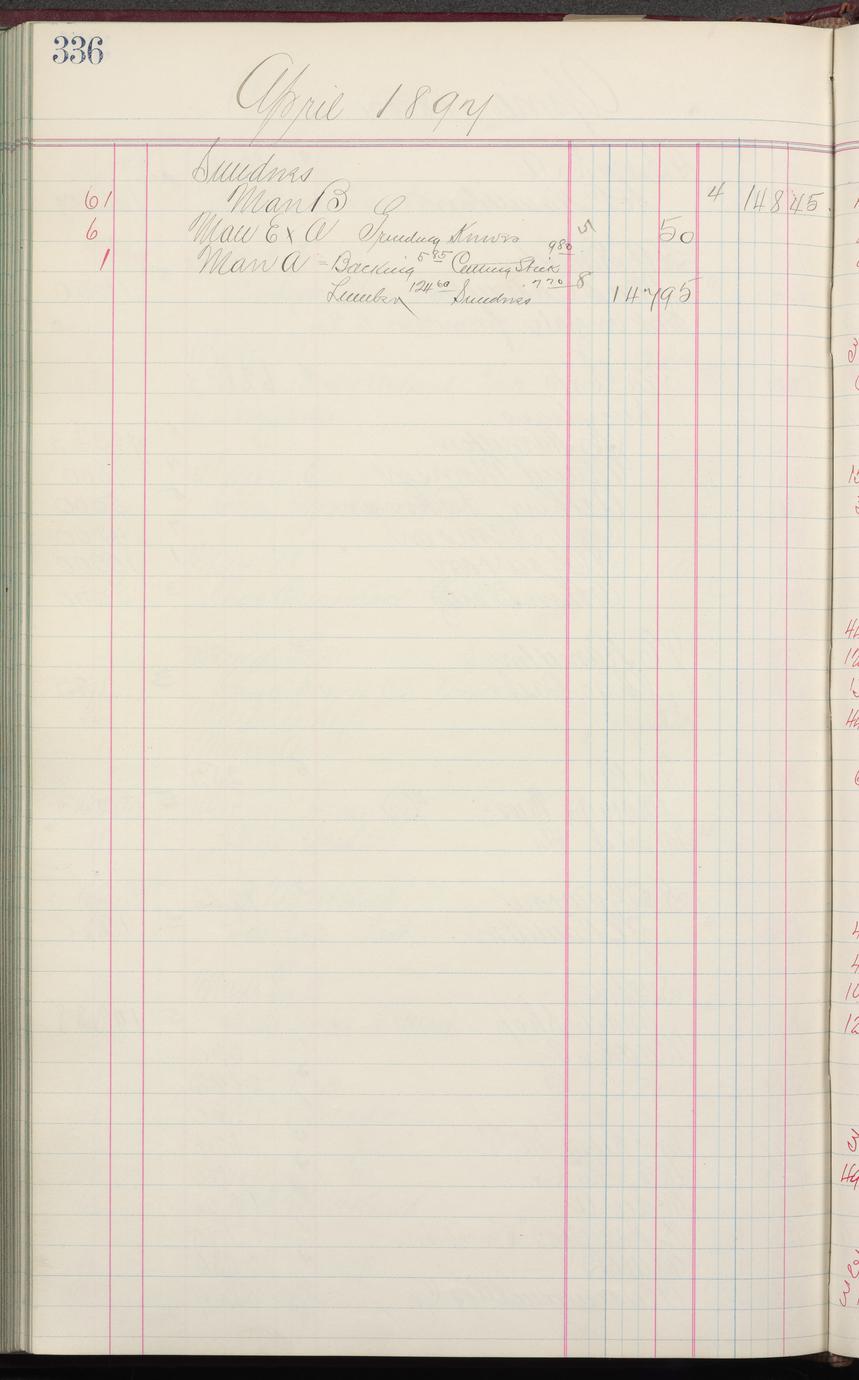 336
April 1897
Sundries
61 Man B 4 148 45
6 Man Ex A Grinding Knives 5 50
1 Man A - Backing 5 85 Cutting Stick 9 80 8 147 95
Lumber 124 60 Sundries 7 70